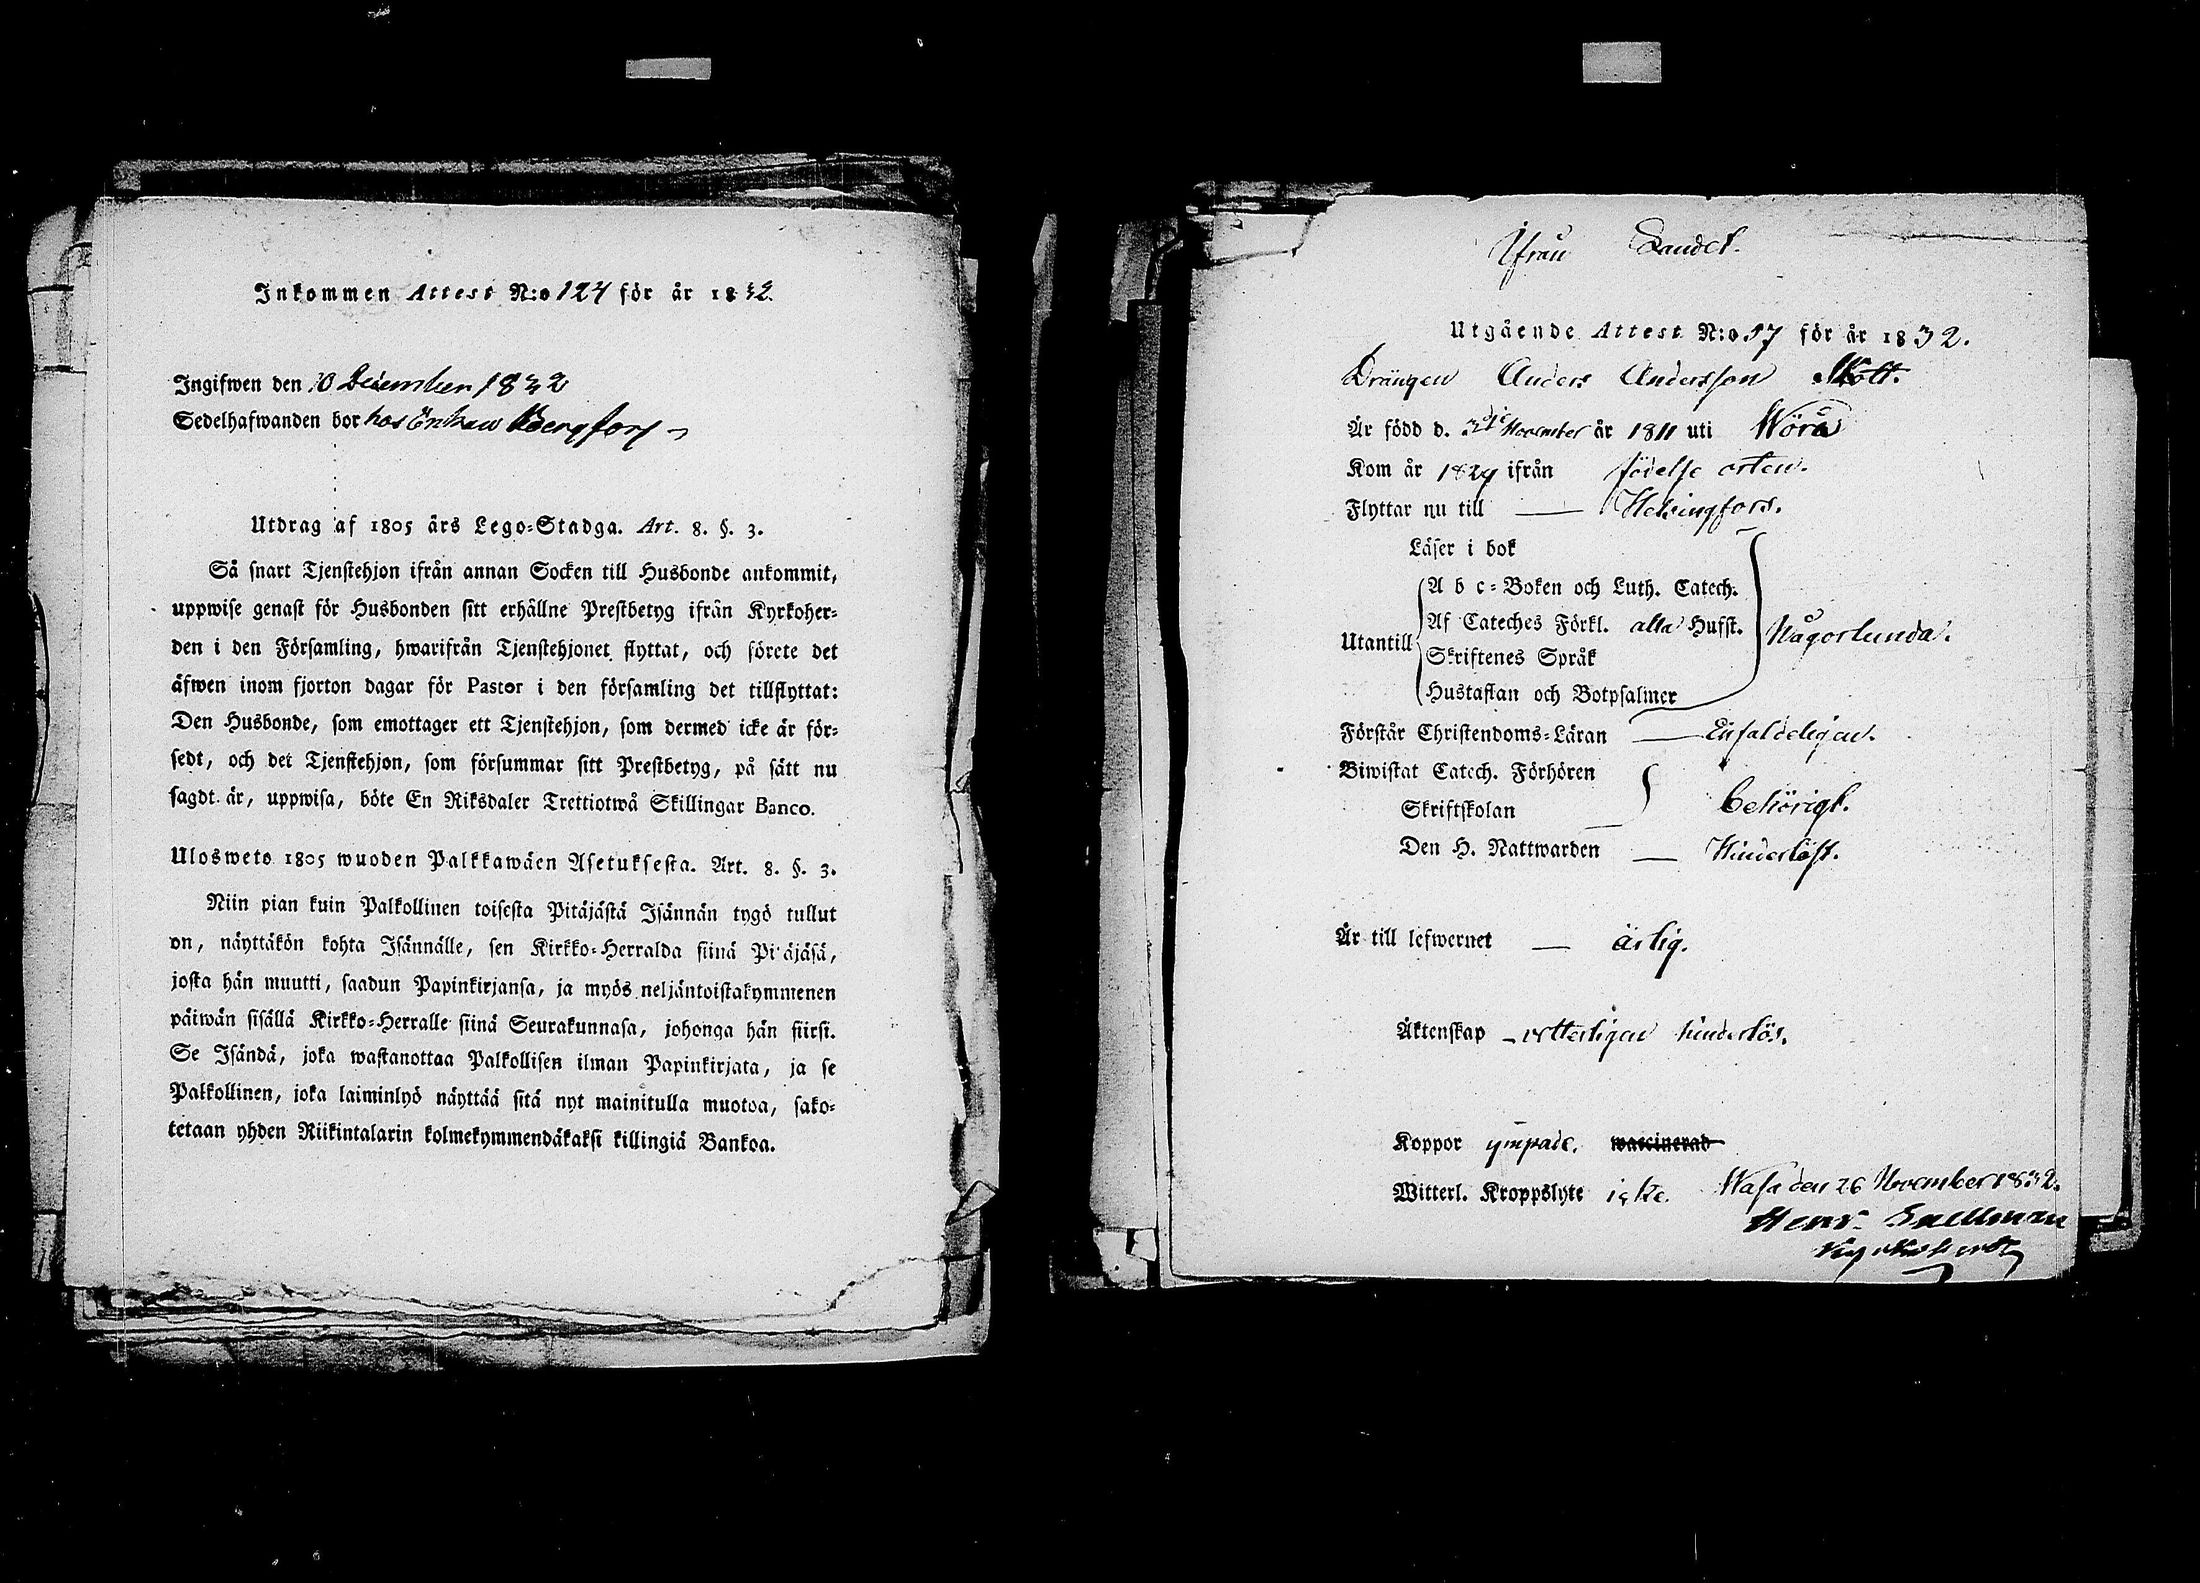 Inkommen Attest N:o 124 för år 1832.
Ingifwen den 10 December 1832
Sedelhafwanden bor hos Enkan Bergfors
Utdrag af 1805 års Lego=Stadga. Art. 8. §. 3.
Så snart Tjenstehjon ifrån annan Socken till Husbonde ankommit,
uppwise genast för Husbonden sitt erhållne Prestbetyg ifrån Kyrkoher=
den i den Församling, hwarifrån Tjenstehjonet flyttat, och förete det
äfwen inom fjorton dagar för Pastor i den församling det tillflyttat:
Den Husbonde, som emottager ett Tjenstehjon, som dermed icke är för=
sedt, och det Tjenstehjon, som försummar sitt Prestbetyg, på sätt nu
sagdt är, uppwisa, böte En Riksdaler Trettiotwå Skillingar Banco.
Ulosweto 1805 wuoden Palkkawäen Asetuksesta. Art. 8. §. 3.
Niin pian kuin Palkollinen toisesta Pitäjästä Isännän tygö tullut
on, näyttäkön kohta Isännälle, sen Kirkko=Herralda siinä Pitäjäsä,
josta hän muutti, saadun Papinkirjansa, ja myös neljäntoistakymmenen
päiwän sisällä Kirkko=Herralle siinä Seurakunnasa, johonga hän siirsi.
Se Isändä, joka wastanottaa Palkollisen ilman Papinkirjata, ja se
Palkollinen, joka laiminlyö näyttää sitä nyt mainitulla muotoa, sako=
tetaan yhden Riikintalarin kolmekymmendäkaksi killingiä Bankoa.
Ifrån Landet.
Utgående Attest N:o 57 för år 1832.
Drängen Anders Andersson Mått.
Är född d. November år 1811 uti Wörå
Kom år 1829 ifrån födelse orten.
Flyttar nu till — Helsingfors.
Läser i bok
A b c=Boken och Luth. Catech.
Af Cateches Förkl. alla Hufst.
Utantill
Någorlunda.
Skriftenes Språk
Hustaflan och Botpsalmer
Förstår Christendoms=Läran — Enfaldeligen.
Biwistat Catech. Förhören
Skriftskolan
behörigt.
Den H. Nattwarden — Hinderlöst.
Är till lefwernet — ärlig.
Äktenskap — vetterligen hinderlös.
Koppor ympade. waccinerad
Witterl. Kroppslyte icke. Wasa den 26 November 1832.
Henr. Snellman
Kyrkoherde